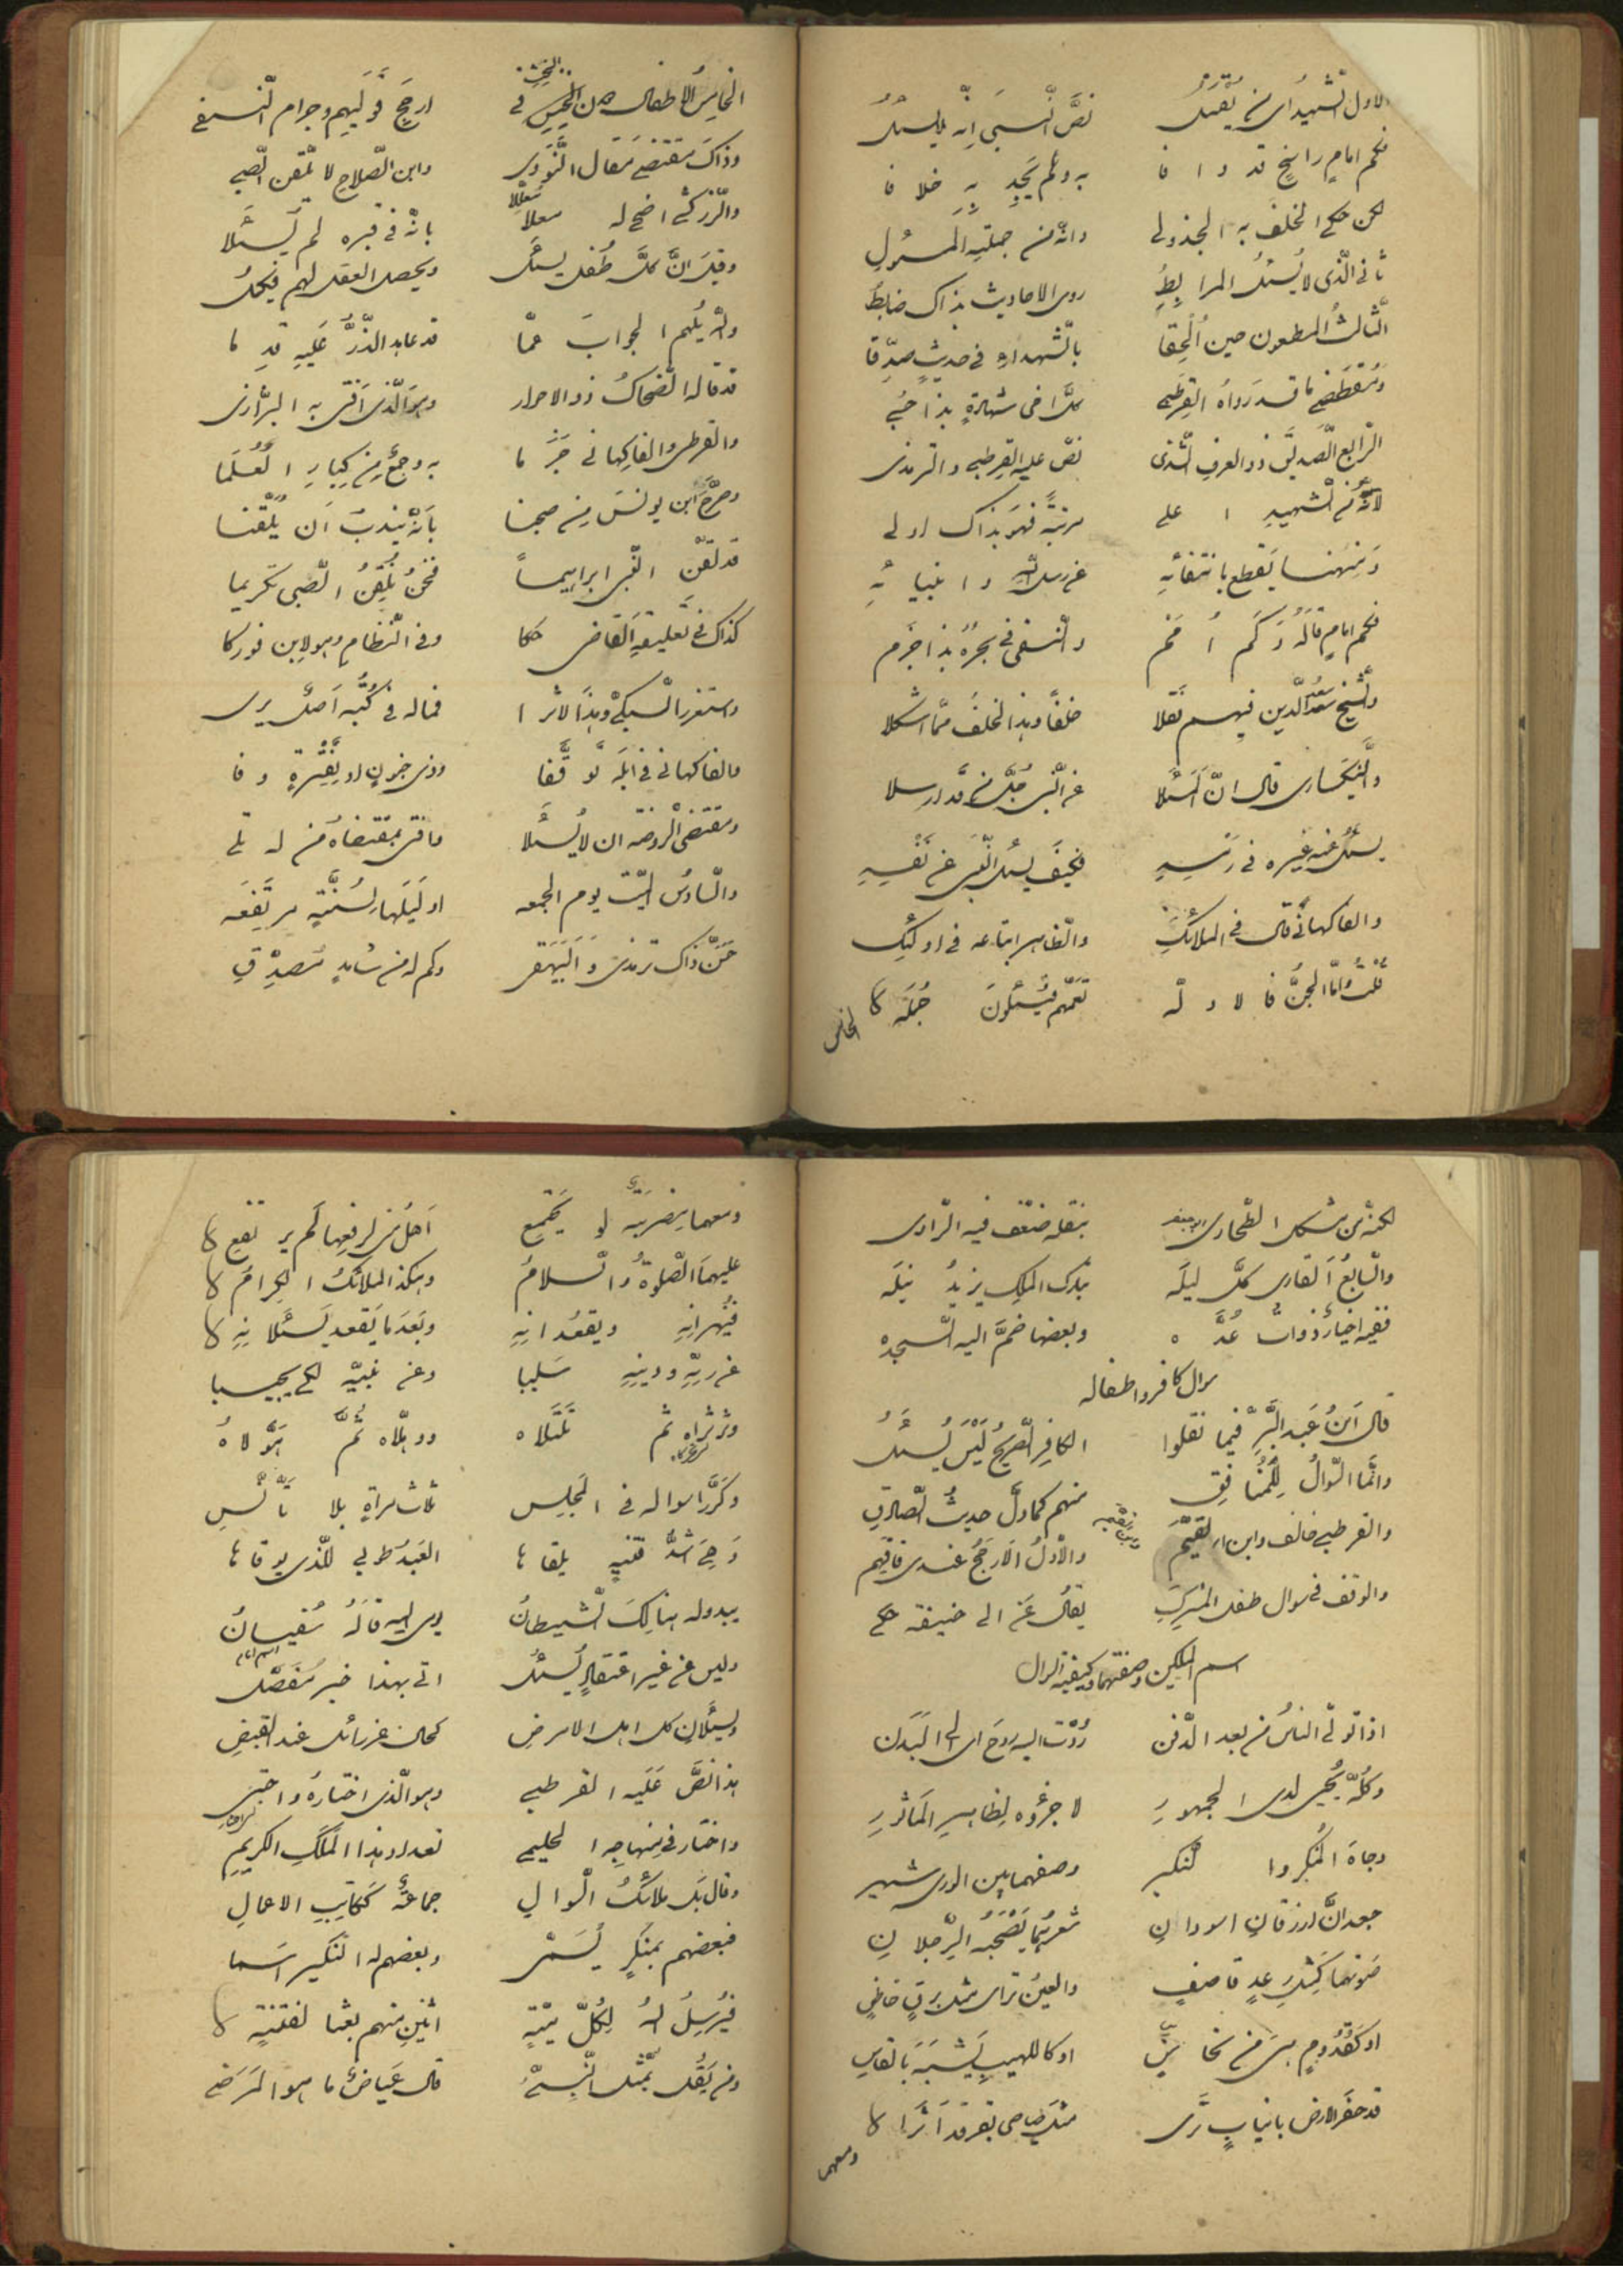 الاول الشهيد اى من يقتل نص النبي انه لا يسئل
فكم امام راسخ قد وافا به ولم يجد به خلافا
لكن حكى الخلف به الجذولى وانه من جملة المسئول
ثانى الذى لا يسئل المرابط روى الاحاديث بذاك ضابط
الثالث المطعون حين الحقا بالشهداء فى حديث صدقا
ومقتضى ما قد رواه القرطبى كل اخى شهادة بذا حبى
الرابع الصديق ذو العرف الشذى نص عليه القرطبى والترمذى
لانه من الشهيد اعلى مرتبة فهو بذاك اولى
ومن هنا يقطع بانتفائه عن رسل الله وانبيائه
فكم امام قاله وكم امم والنسفى فى بحره بذا جزم
والشيخ سعد الدين فيهم نقلا خلفا وهذا الخلف مما اشكلا
والنيكسارى قال ان المسئلا عن النبى جل من قد ارسلا
يسئل عنه غيره فى رمسه فكيف يسئل النبى عن نفسه
والفاكهانى قال فى الملائك والظاهر امتناعه فى اولئك
قلت واما الجن فالادله تعمهم فيسئلون جمله
الخامس
الخامس الاطفال من الحبث فى ارجح قوليهم وجزم النسفى
وذاك مقتضى مقال النووى وابن الصلاح لا تلقن الصبى
والزركشى اضحى له معللا بانه فى قبره لم يسئلا
وقيل ان كل طفل يسئل ويحصل العقل لهم فيكمل
والله يلهم الجواب عما قد عاهد الذر عليه قدما
قد قاله الضحاك ذو الاحراز وهو الذى افتى به البزازى
والقرطبى والفاكهانى جزما به وجمع من كبار العلما
وصرح ابن يونس من صحبنا بانه يندب ان يلقنا
قد لقن النبى ابراهيما فنحن نلقن الصبى تكريما
كذاك فى تعليقة القاضى حكا وفى النظام وهو لابن فوركا
واستغرب السبكى وهذا الاثرا فما له فى كتبه اصل يرى
والفاكهانى فى ابله توقفا وذى جنون او بفترة وفا
ومقتضى الروضة ان لا يسئلا وافتى بمقتضاه من له تلى
والسادس الميت يوم الجمعه او ليلها لسنة مرتفعه
حسن ذاك ترمذى والبيهقى وكم له من شاهد مصدق
لكنه من مشكل الطحاوى بنقله ضعف فيه الراوى
والسابع القارى كل ليله تبارك الملك يزيد نيله
ففيه اخبار ذوات عده وبعضها ضم اليه السجده
سوال كافر واطفاله
قال ابن عبد البر فيما نقلوا الكافر الصريح ليس يسئل
وانما السوال للمنافق منهم كما دل حديث الصادق
والقرطبى خالف وابن القيم والاول الارجح عندى فافهم
والوقف فى سوال طفل المشرك يقال عن ابى حنيفة حكى
اسم الملكين وصفتهما وكيفية السوال
اذا تولى الناس من بعد الدفن ردت اليه روح اى الى البدن
وكله يحيى لدى الجمهور لا جزؤه لظاهر المأثور
وجاءه المنكر والنكير وصفهما بين الورى شهير
جعدان ازرقان اسودان شعرهما يصحبه الرجلان
صوتهما كشبه رعد قاصف والعين ترائى مثل برق خاطف
او كقدوم من نحاس او كاللهيب يشبه بالقاس
قد حفر الارض بانياب ترى مثل صياصى بقر قد اثرا
ومعهما
ومعهما مرزبة لو يجتمع اهل منى لرفعها لم يرتفع
عليهما الصلوة والسلام وهكذا الملائك الكرام
فينهرانه ويقعدانه وبعد ما يقعد يسئلانه
عن ربه ودينه سليبا وعن نبيه لكى يجيبا
وترتراه ثم تلتلاه ووهلاه ثم هولاه
وكررا سواله فى المجلس ثلاث مرات بلا تأنس
وهى اشد فتنة يلقاها العبد طوبى للذى يوقاها
يبدو له هنالك الشيطان يومى اليه قاله سفيان
وليس عن غير اعتقاد يسئل اتى بهذا خبر مفصل
ويسئلان كل اهل الارض كحال عزرائل عند القبض
هذا نص عليه القرطبى وهو الذى اختاره واجتبى
واختار فى منهاجه الحليمى تعداد هذا الملك الكريم
وقال بل ملائك السوال جماعة ككاتب الاعمال
فبعضهم بمنكر يسمى وبعضهم له النكير اسما
فيرسل الله لكل ميت اثنين منهم بعثا لفتنة
ومن يقل يمثل النبى قال عياض ما هو المرضى